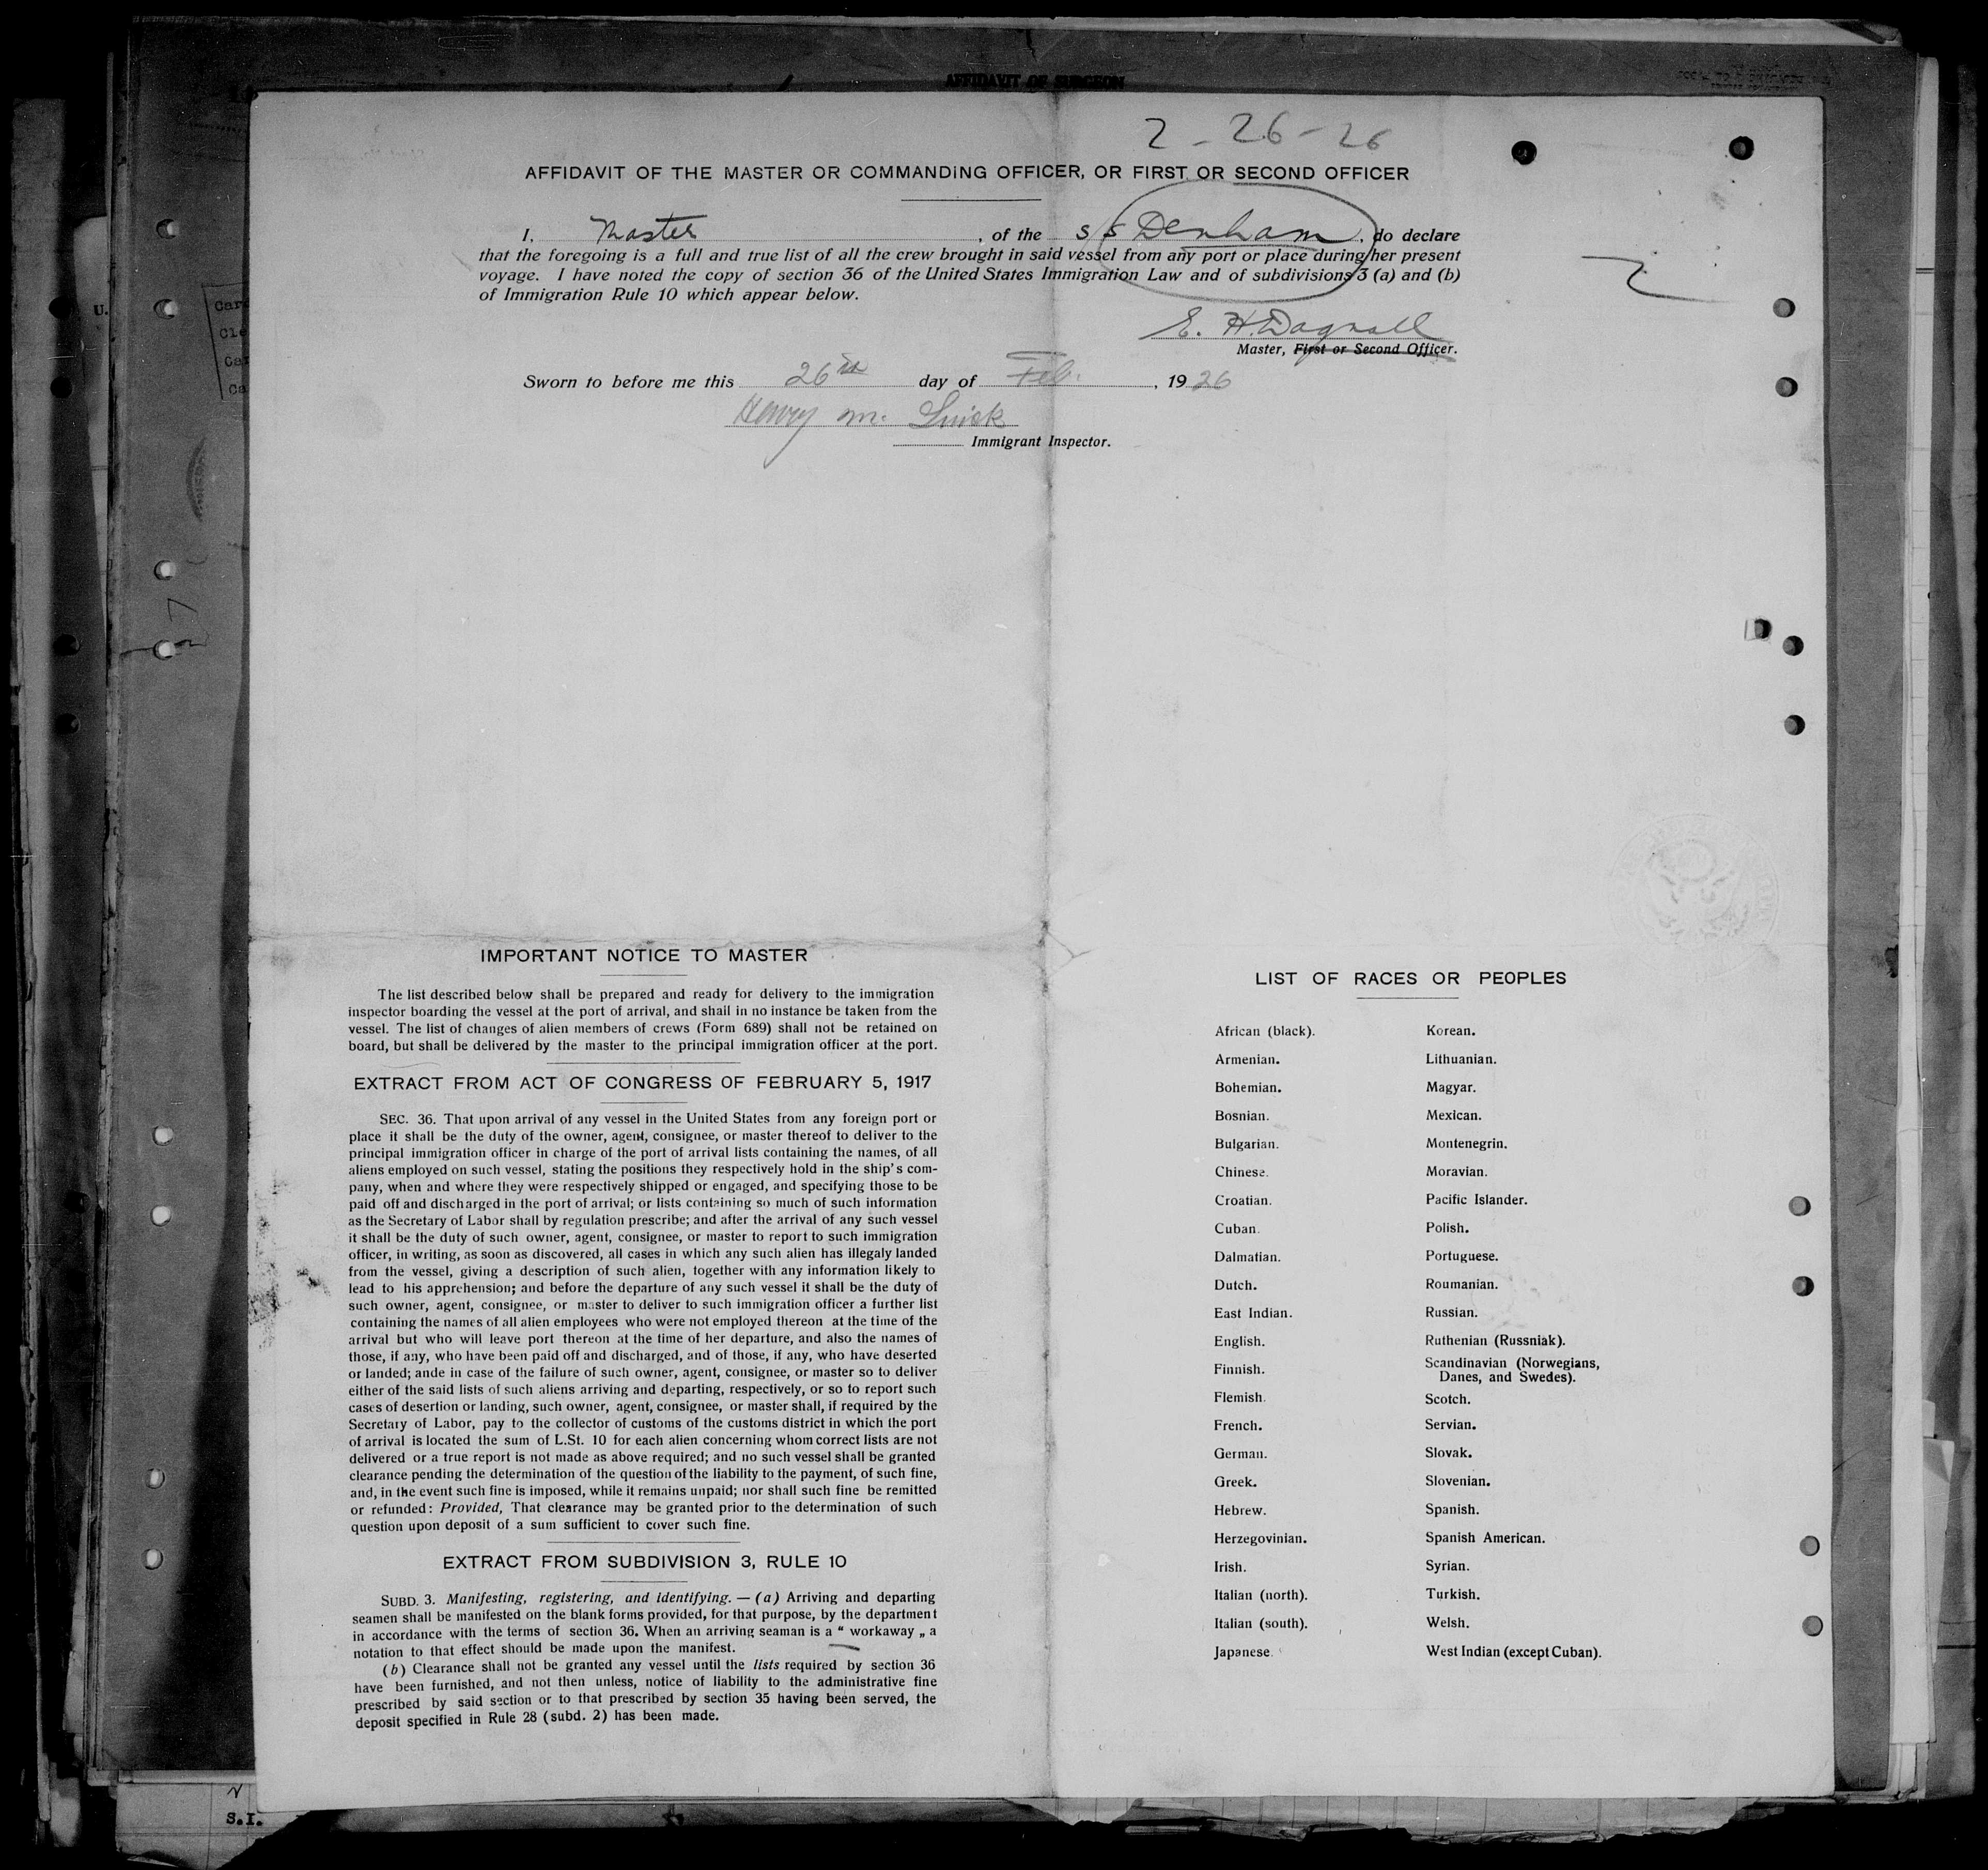 AFFIDAVIT OF SURGEON
2 - 26 - 26
AFFIDAVIT OF THE MASTER OR COMMANDING OFFICER, OR FIRST OR SECOND OFFICER
I, Master, of the SS Denham, do declare
that the foregoing is a full and true list of all the crew brought in said vessel from any port or place during her present
voyage. I have noted the copy of section 36 of the United States Immigration Law and of subdivisions 3 (a) and (b)
of Immigration Rule 10 which appear below.
E. H. Dagnall
Master, First or Second Officer.
Sworn to before me this 26th day of Feb., 1926
Henry M.
Immigrant Inspector.
IMPORTANT NOTICE TO MASTER
The list described below shall be prepared and ready for delivery to the immigration
inspector boarding the vessel at the port of arrival, and shall in no instance be taken from the
vessel. The list of changes of alien members of crews (Form 689) shall not be retained on
board, but shall be delivered by the master to the principal immigration officer at the port.
EXTRACT FROM ACT OF CONGRESS OF FEBRUARY 5, 1917
SEC. 36. That upon arrival of any vessel in the United States from any foreign port or
place it shall be the duty of the owner, agent, consignee, or master thereof to deliver to the
principal immigration officer in charge of the port of arrival lists containing the names, of all
aliens employed on such vessel, stating the positions they respectively hold in the ship's com-
pany, when and where they were respectively shipped or engaged, and specifying those to be
paid off and discharged in the port of arrival; or lists containing so much of such information
as the Secretary of Labor shall by regulation prescribe; and after the arrival of any such vessel
it shall be the duty of such owner, agent, consignee, or master to report to such immigration
officer, in writing, as soon as discovered, all cases in which any such alien has illegaly landed
from the vessel, giving a description of such alien, together with any information likely to
lead to his apprehension; and before the departure of any such vessel it shall be the duty of
such owner, agent, consignee, or master to deliver to such immigration officer a further list
containing the names of all alien employees who were not employed thereon at the time of the
arrival but who will leave port thereon at the time of her departure, and also the names of
those, if any, who have been paid off and discharged, and of those, if any, who have deserted
or landed; ande in case of the failure of such owner, agent, consignee, or master so to deliver
either of the said lists of such aliens arriving and departing, respectively, or so to report such
cases of desertion or landing, such owner, agent, consignee, or master shall, if required by the
Secretary of Labor, pay to the collector of customs of the customs district in which the port
of arrival is located the sum of L.St. 10 for each alien concerning whom correct lists are not
delivered or a true report is not made as above required; and no such vessel shall be granted
clearance pending the determination of the question of the liability to the payment, of such fine,
and, in the event such fine is imposed, while it remains unpaid; nor shall such fine be remitted
or refunded: Provided, That clearance may be granted prior to the determination of such
question upon deposit of a sum sufficient to cover such fine.
EXTRACT FROM SUBDIVISION 3, RULE 10
SUBD. 3. Manifesting, registering, and identifying. — (a) Arriving and departing
seamen shall be manifested on the blank forms provided, for that purpose, by the department
in accordance with the terms of section 36. When an arriving seaman is a “ workaway „ a
notation to that effect should be made upon the manifest.
(b) Clearance shall not be granted any vessel until the lists required by section 36
have been furnished, and not then unless, notice of liability to the administrative fine
prescribed by said section or to that prescribed by section 35 having been served, the
deposit specified in Rule 28 (subd. 2) has been made.
LIST OF RACES OR PEOPLES
African (black).
Armenian.
Bohemian.
Bosnian.
Bulgarian.
Chinese.
Croatian.
Cuban.
Dalmatian.
Dutch.
East Indian.
English.
Finnish.
Flemish.
French.
German.
Greek.
Hebrew.
Herzegovinian.
Irish.
Italian (north).
Italian (south).
Japanese.
Korean.
Lithuanian.
Magyar.
Mexican.
Montenegrin.
Moravian.
Pacific Islander.
Polish.
Portuguese.
Roumanian.
Russian.
Ruthenian (Russniak).
Scandinavian (Norwegians,
Danes, and Swedes).
Scotch.
Servian.
Slovak.
Slovenian.
Spanish.
Spanish American.
Syrian.
Turkish.
Welsh.
West Indian (except Cuban).
S.I.